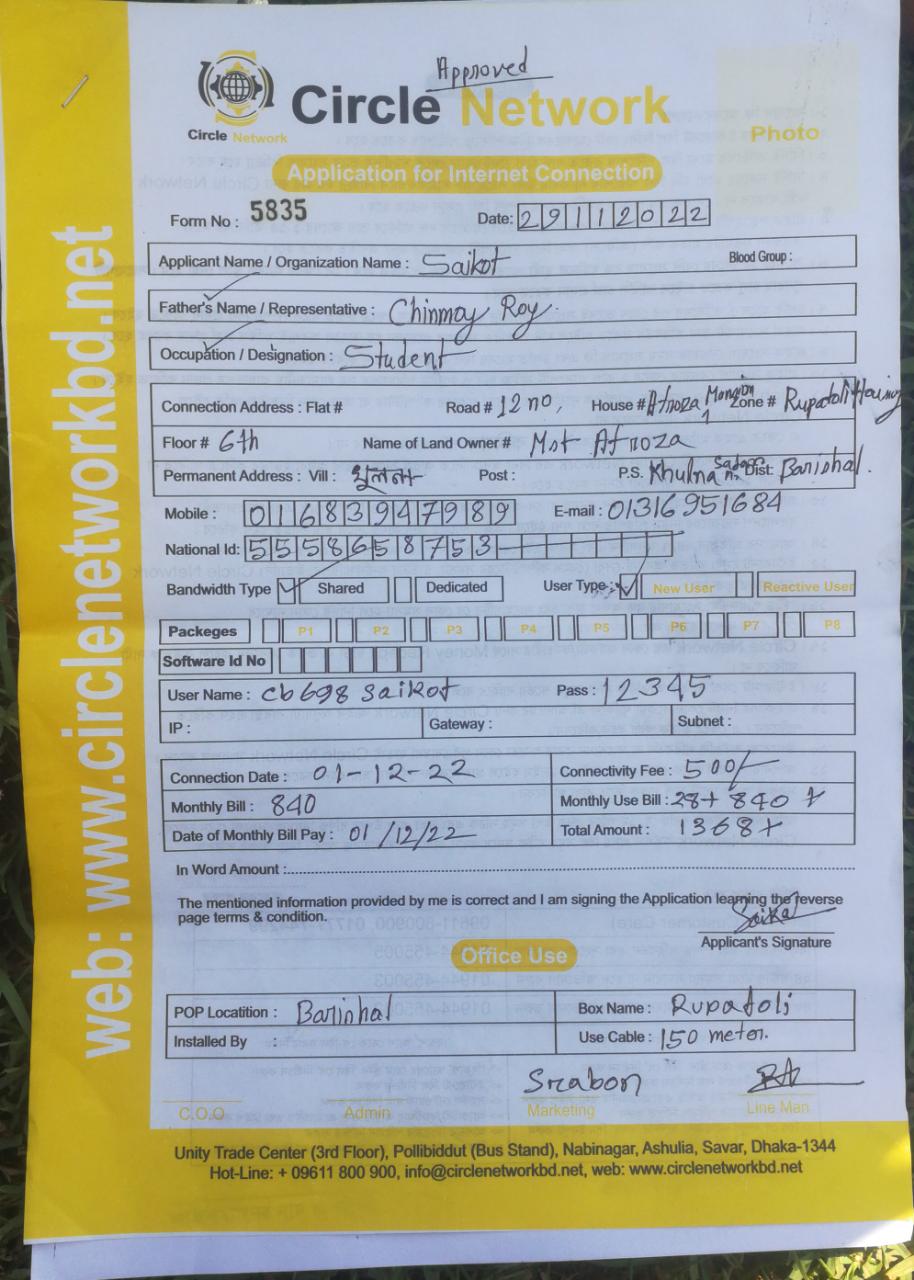 Approved
Circle Network
Circle Network
Photo
Application for Internet Connection
Form No : 5835
Date: 29112022
Applicant Name / Organization Name : Saikot Blood Group :
Father's Name / Representative : Chinmoy Roy.
Occupation / Designation : Student
Connection Address : Flat # Road # 12 no, House # Afroza Mansion 1 Zone # Rupatoli Housing
Floor # 6th Name of Land Owner # Mst Afroza
Permanent Address : Vill : খুলনা Post : P.S. Khulna Sadar Dist: Barishal.
Mobile : 01683947989 E-mail : 01316951684
National Id: 5558658753
Bandwidth Type Shared Dedicated User Type : New User Reactive User
Packeges P1 P2 P3 P4 P5 P6 P7 P8
Software Id No
User Name : cb698 saikot Pass : 12345
IP : Gateway : Subnet :
Connection Date : 01-12-22 Connectivity Fee : 500/-
Monthly Bill : 840 Monthly Use Bill : 28+ 840
Date of Monthly Bill Pay : 01/12/22 Total Amount : 1368
In Word Amount :
The mentioned information provided by me is correct and I am signing the Application learning the reverse
page terms & condition.
Saikat
Applicant's Signature
Office Use
POP Locatition : Barishal Box Name : Rupatoli
Installed By : Use Cable : 150 meter.
Srabon
C.O.O Admin Marketing Line Man
Unity Trade Center (3rd Floor), Pollibiddut (Bus Stand), Nabinagar, Ashulia, Savar, Dhaka-1344
Hot-Line: + 09611 800 900, info@circlenetworkbd.net, web: www.circlenetworkbd.net
web: www.circlenetworkbd.net